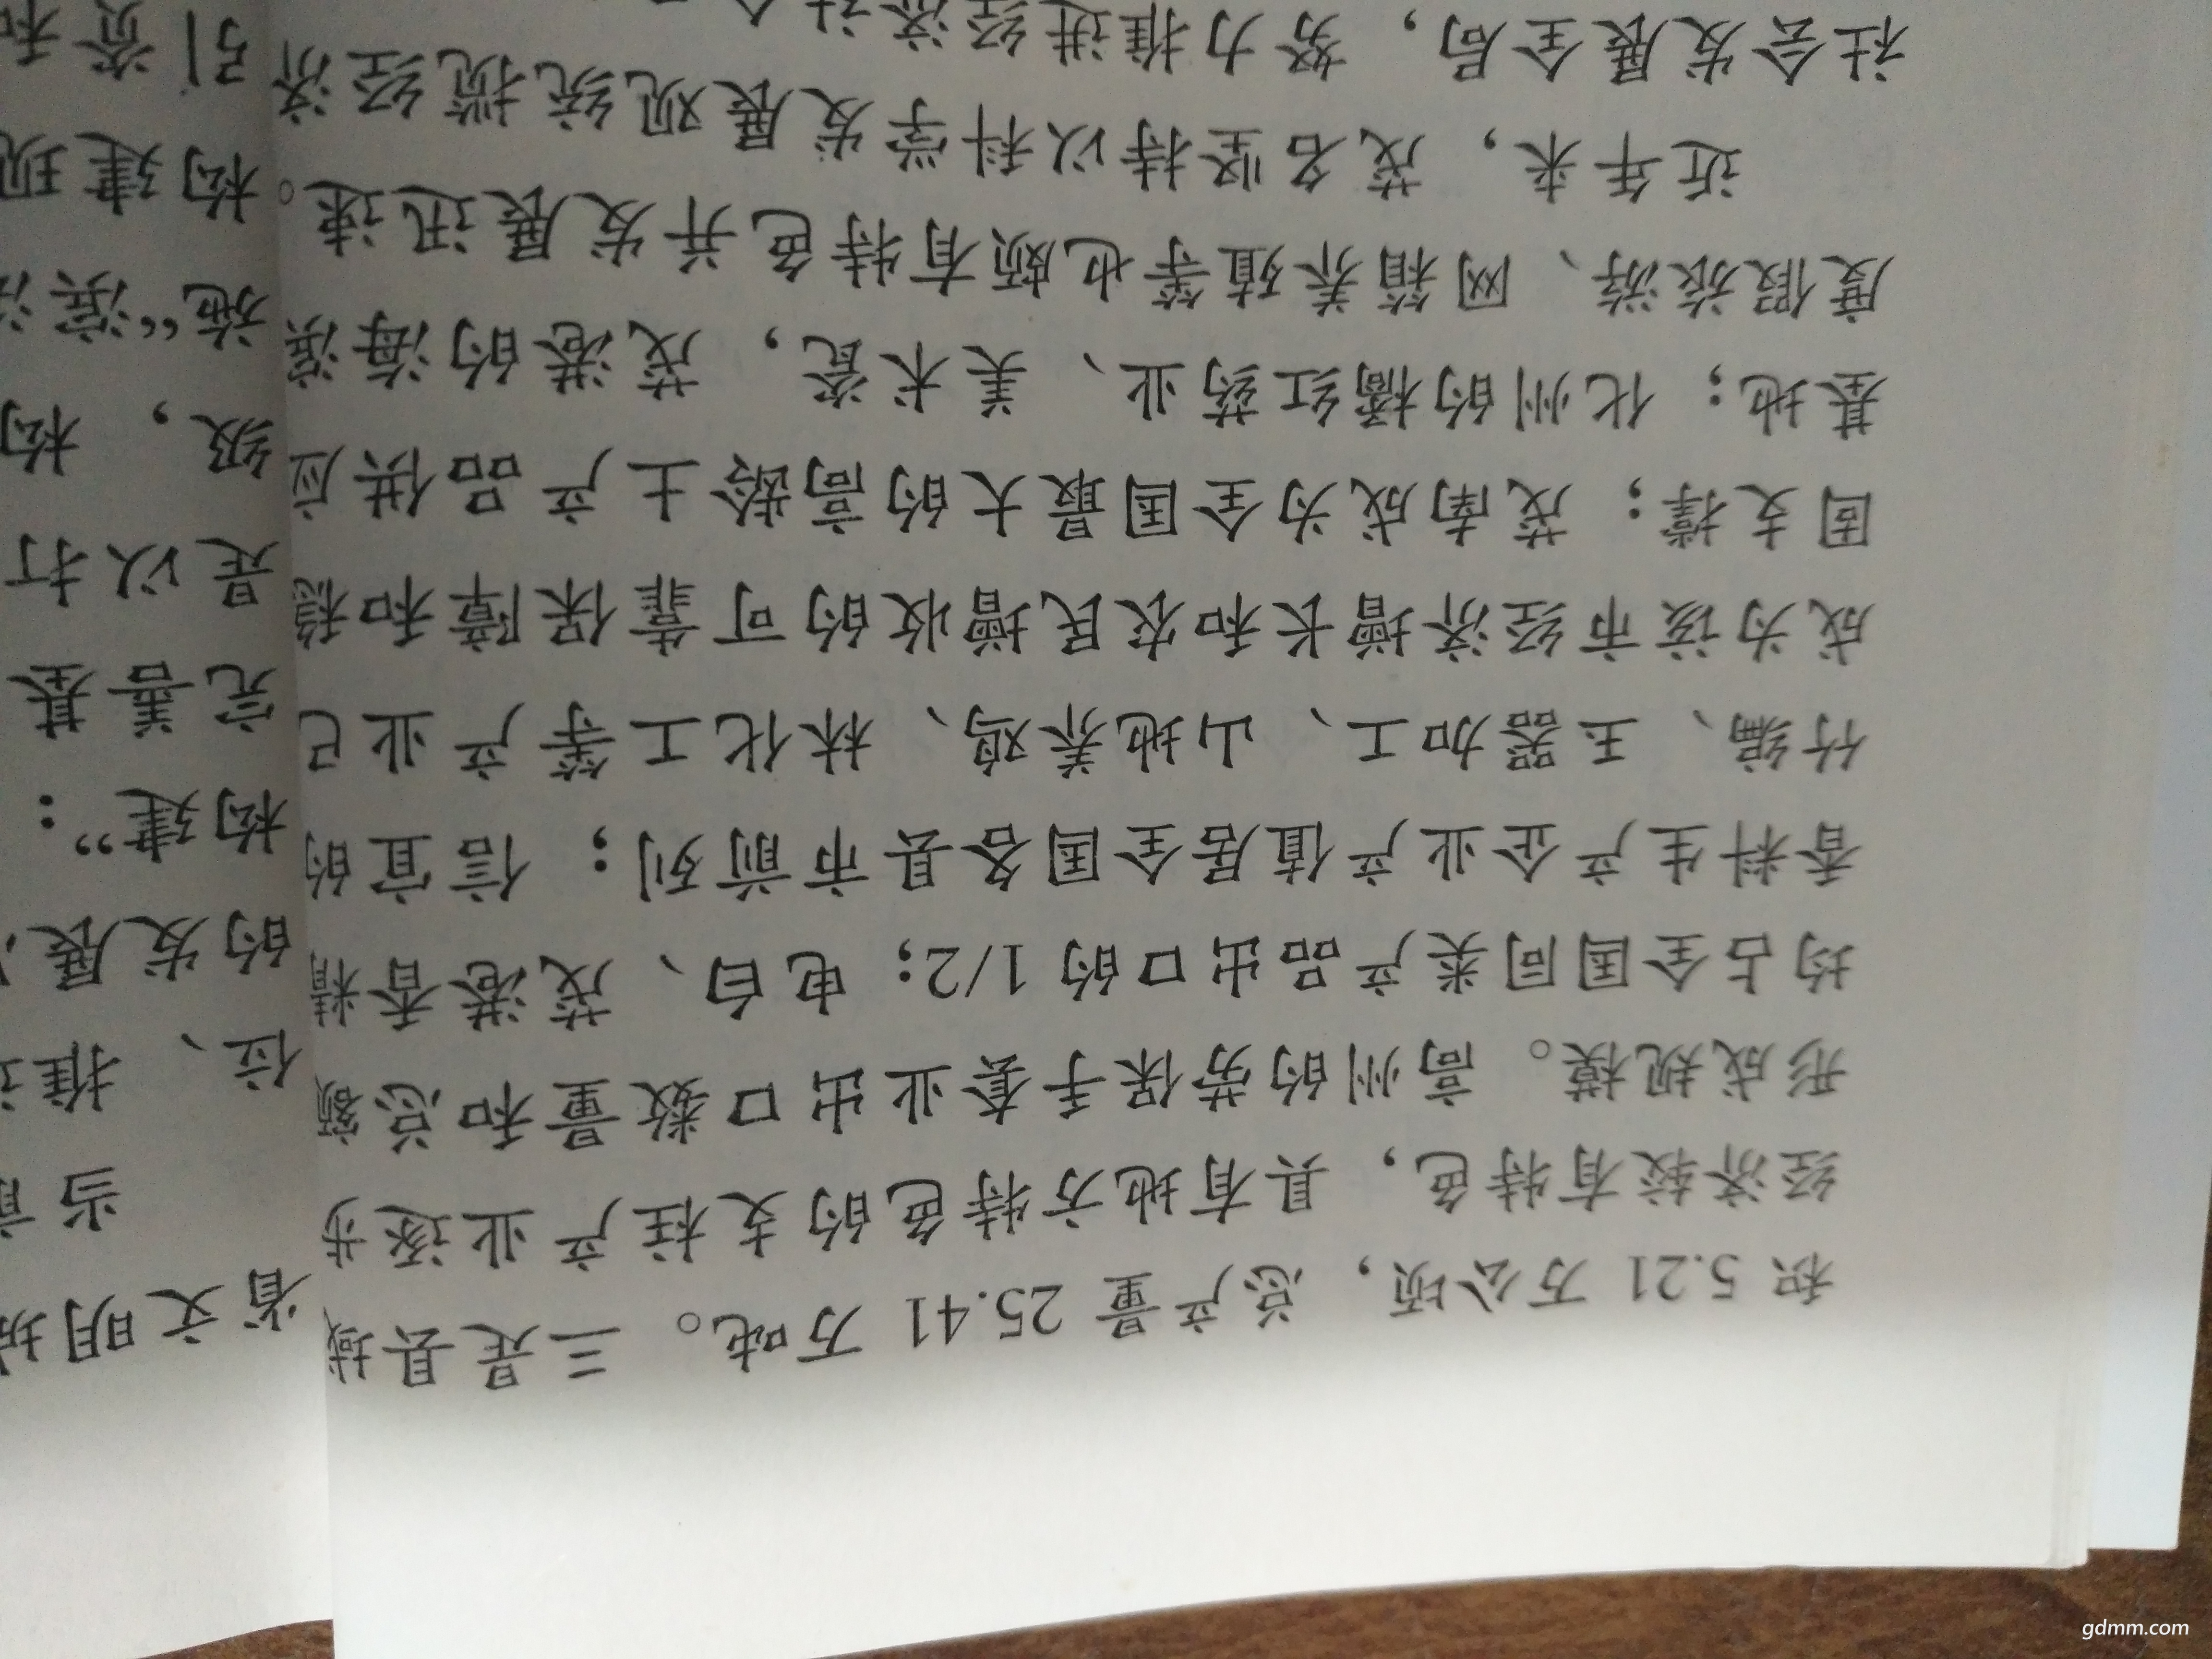 积 5.21 万公顷，总产量 25.41 万吨。三是县域
经济较有特色，具有地方特色的支柱产业逐步
形成规模。高州的劳保手套业出口数量和总额
均占全国同类产品出口的 1/2；电白、茂港香精
香料生产企业产值居全国各县市前列；信宜的
竹编、玉器加工、山地养鸡、林化工等产业已
成为该市经济增长和农民增收的可靠保障和稳
固支撑；茂南成为全国最大的高龄土产品供应
基地；化州的橘红药业、美术瓷，茂港的海滨
度假旅游、网箱养殖等也颇有特色并发展迅速。
近年来，茂名坚持以科学发展观统揽经济
社会发展全局，努力推进经济社会
省文明城
当前
位、推进
的发展
构建”：
完善基
是以打
级，构
施“滨海
构建现
引资和
gdmm.com